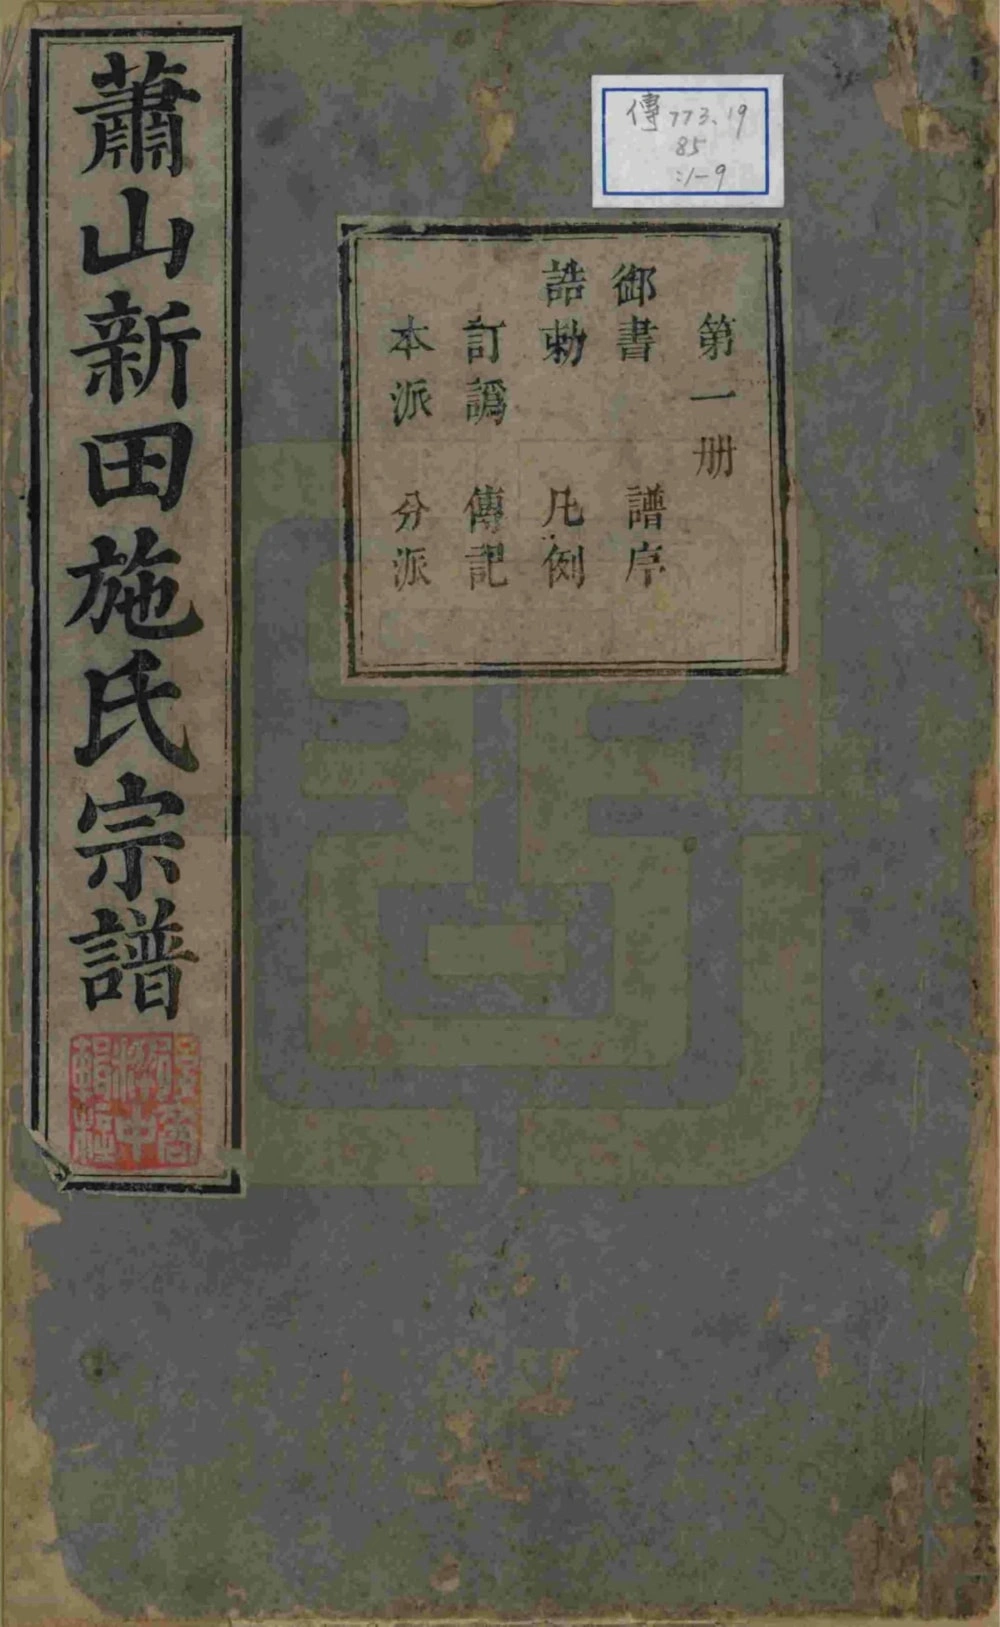 傳 773.19
85
:1-9
第一册
御書 譜序
誥勅 凡例
訂譌 傳記
本派 分派
蕭山新田施氏宗譜